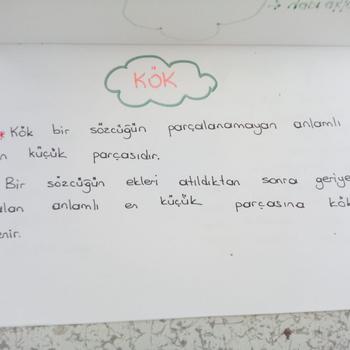 KÖK
* Kök bir sözcüğün parçalanamayan anlamlı
küçük parçasıdır.
Bir sözcüğün ekleri atıldıktan sonra geriye
anlamlı en küçük parçasına kök